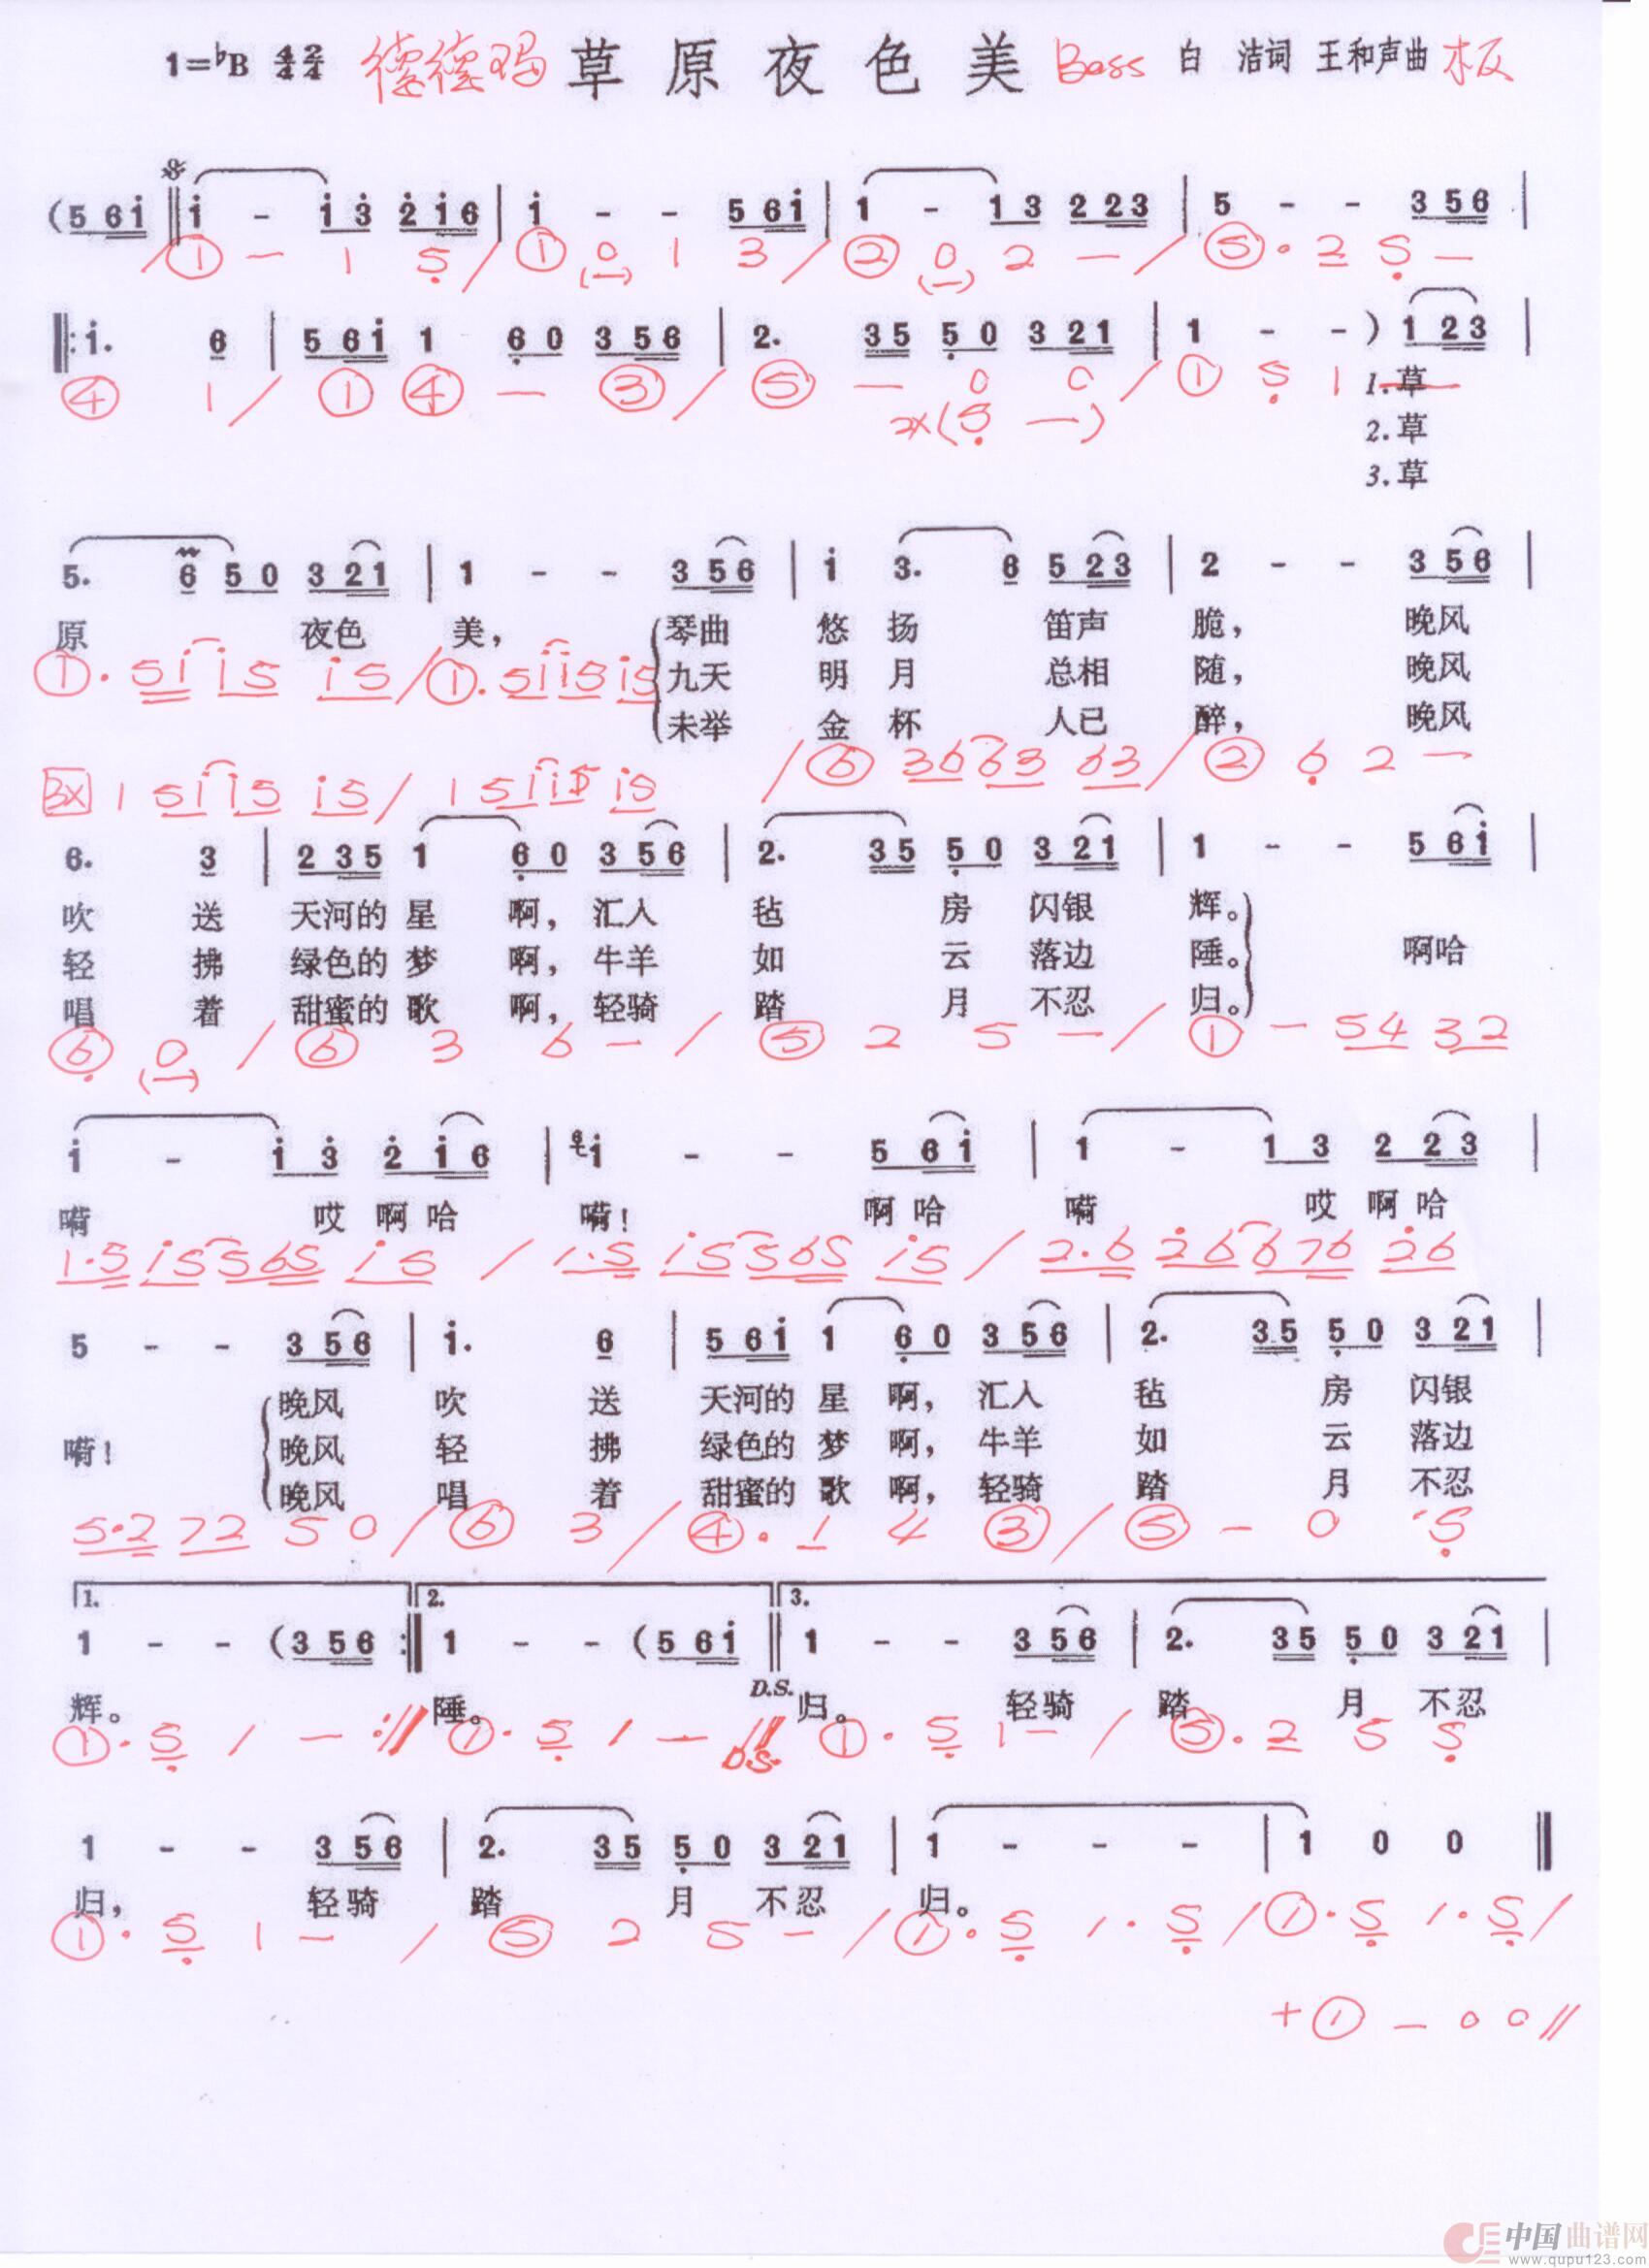 1=♭B 4/4 2/4 德德玛 草原夜色美 Bass 白 洁词 王和声曲 板
(5 6 i ‖ i - i 3 2 i 6 | i - - 5 6 i | 1 - 1 3 2 2 3 | 5 - - 3 5 6 |
/ ① — 1 5 / ① 0 (—) 1 3 / ② 0 (—) 2 — / ⑤ · 2 5 —
‖: i. 6 | 5 6 i 1 6 0 3 5 6 | 2. 3 5 5 0 3 2 1 | 1 - - ) 1 2 3 |
④ 1 / ① ④ — ③ / ⑤ — 0 0 / ① 5 1 —
1.草
2x (5 —)
2.草
3.草
5. 6 5 0 3 2 1 | 1 - - 3 5 6 | i 3. 6 5 2 3 | 2 - - 3 5 6 |
原 夜色 美, 琴曲 悠 扬 笛声 脆, 晚风
九天 明 月 总相 随, 晚风
未举 金 杯 人已 醉, 晚风
① · 5 i i 5 i 5 / ① . 5 i i 5 i 5
/ ⑥ 3 6 6 3 6 3 / ② 6 2 —
3x 1 5 i i 5 i 5 / 1 5 i i 5 i 5
6. 3 | 2 3 5 1 6 0 3 5 6 | 2. 3 5 5 0 3 2 1 | 1 - - 5 6 i |
吹 送 天河的 星 啊, 汇入 毡 房 闪银 辉。
轻 拂 绿色的 梦 啊, 牛羊 如 云 落边 陲。 啊哈
唱 着 甜蜜的 歌 啊, 轻骑 踏 月 不忍 归。
⑥ 0 (—) / ⑥ 3 6 — / ⑤ 2 5 — / ① — 5 4 3 2
i - i 3 2 i 6 | 6 i - - 5 6 i | 1 - 1 3 2 2 3 |
嗬 哎 啊 哈 嗬! 啊 哈 嗬 哎 啊 哈
1 . 5 i 5 5 6 5 i 5 / 1 . 5 i 5 5 6 5 i 5 / 2 . 6 2 6 6 7 6 2 6
5 - - 3 5 6 | i. 6 | 5 6 i 1 6 0 3 5 6 | 2. 3 5 5 0 3 2 1 |
晚风 吹 送 天河的 星 啊, 汇入 毡 房 闪银
嗬! 晚风 轻 拂 绿色的 梦 啊, 牛羊 如 云 落边
晚风 唱 着 甜蜜的 歌 啊, 轻骑 踏 月 不忍
5 . 2 7 2 5 0 / ⑥ 3 / ④ . 1 4 ③ / ⑤ — 0 5
1. 2. 3.
1 - - (3 5 6 :‖ 1 - - (5 6 i ‖ 1 - - 3 5 6 | 2. 3 5 5 0 3 2 1 |
D.S.
辉。 陲。 归。 轻骑 踏 月 不忍
① · 5 1 — :// ① · 5 1 — // ① · 5 1 — / ⑤ . 2 5 5
D.S.
1 - - 3 5 6 | 2. 3 5 5 0 3 2 1 | 1 - - - | 1 0 0 ‖
归, 轻骑 踏 月 不忍 归。
① · 5 1 — / ⑤ 2 5 — / ① · 5 1 · 5 / ① · 5 1 · 5 /
+ ① — 0 0 //
中国曲谱网
www.qupu123.com